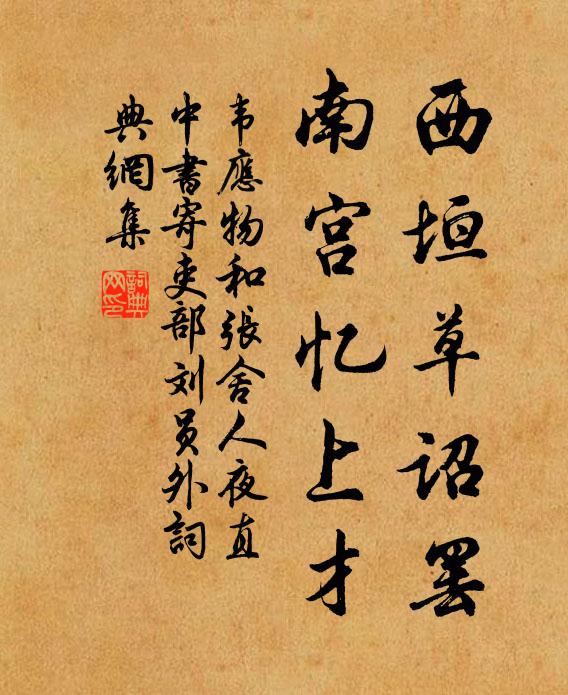 西垣草诏罢
南宫忆上才
韦應物和張舍人夜直
中書寄吏部刘员外詞
典網集
詞典
网印